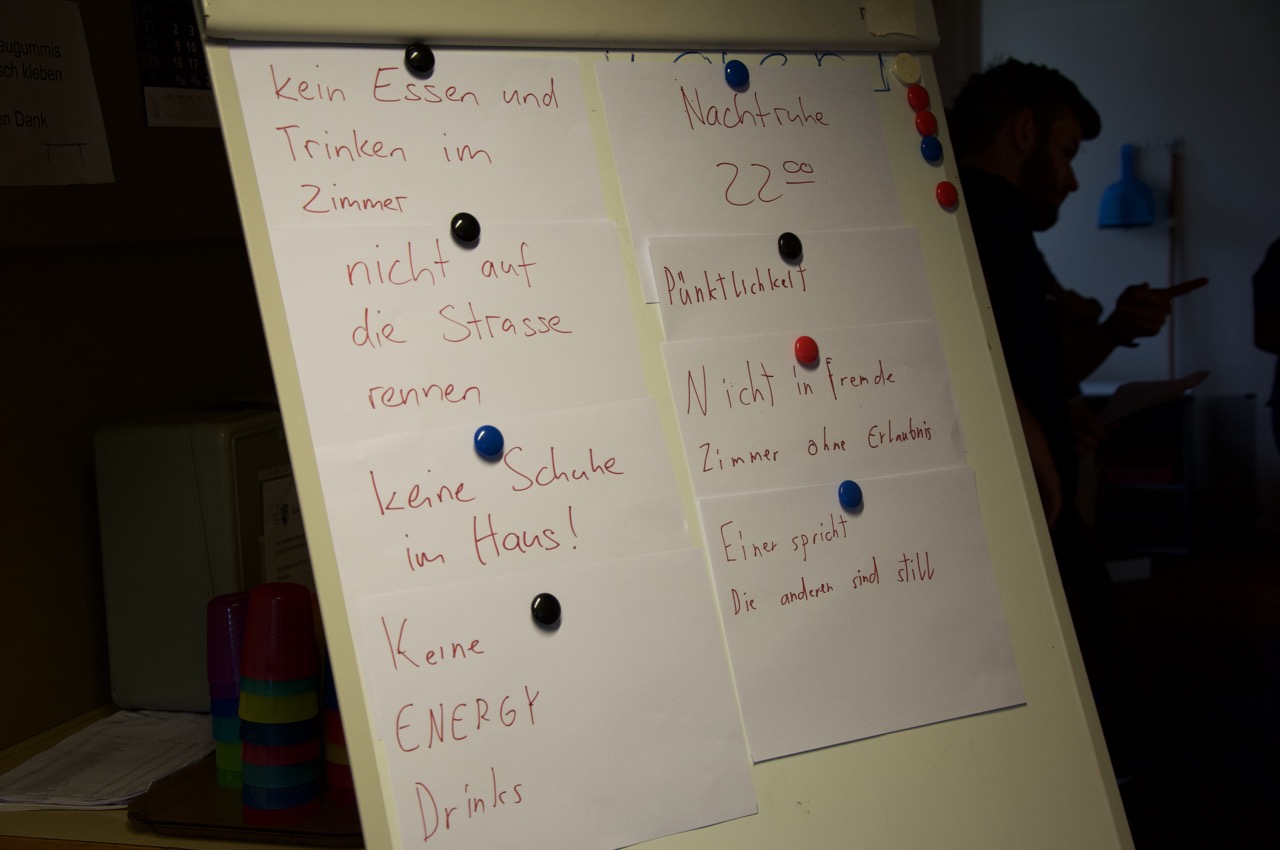 kein Essen und
Trinken im
Zimmer
nicht auf
die Strasse
rennen
keine Schuhe
im Haus!
Keine
ENERGY
Drinks
Nachtruhe
22 00
Pünktlichkeit
Nicht in fremde
Zimmer ohne Erlaubnis
Einer spricht
Die anderen sind still
augummis
sch kleben
en Dank